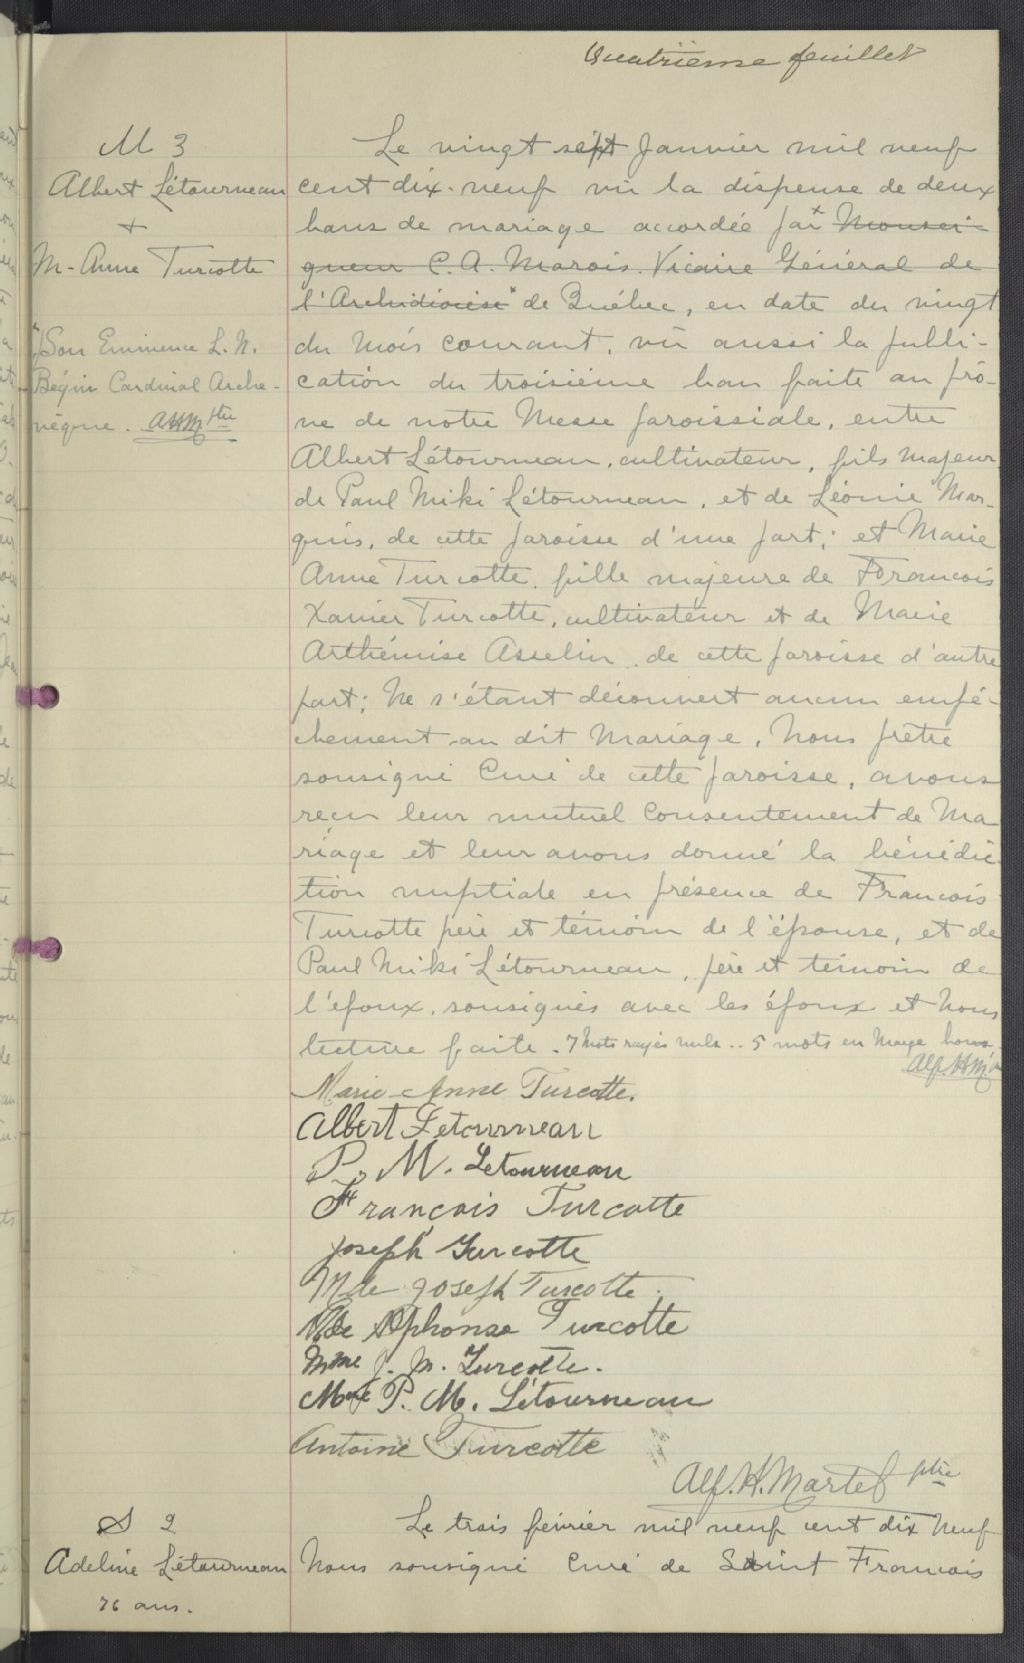 Quatrième feuillet
M 3
Albert Létourneau
+
M-Anne Turcotte
Son Eminence L. N.
Bégin Cardinal Arche-
vêque. AHM ptre
Le vingt sept Janvier mil neuf
cent dix-neuf vu la dispense de deux
bans de mariage accordée par + Monsei-
gneur C. A. Marois. Vicaire Général de
l'Archidiocèse de Québec, en date du vingt
du mois courant, vu aussi la publi-
cation du troisième ban faite au prô-
ne de notre Messe paroissiale, entre
Albert Létourneau, cultivateur, fils majeur
de Paul Miki Létourneau, et de Léonie Mar-
quis, de cette paroisse d'une part; et Marie
Anne Turcotte, fille majeure de Francois
Xavier Turcotte, cultivateur et de Marie
Arthémise Asselin, de cette paroisse d'autre
part; Ne s'étant découvert aucun empê-
chement au dit Mariage, Nous prêtre
sousigné Curé de cette paroisse, avons
reçu leur mutuel Consentement de Ma
riage et leur avons donné la bénédic
tion nuptiale en présence de Francois
Turcotte père et témoin de l'épouse, et de
Paul Miki Létourneau, père et témoin de
l'époux, sousignés avec les époux et Nous
lecture faite. 7 Mots rayés nuls.. 5 mots en Marge bons
Alf. H M
Marie-Anne Turcotte.
Albert Letourneau
P. M. Letourneau
François Turcotte
Joseph Turcotte
Mde Joseph Turcotte.
Mde Alphonse Turcotte
Mme J. M. Turcotte.
Mme P. M. Létourneau
Antoine Turcotte
Alf. H. Martel ptre
S 2
Adeline Létourneau
76 ans.
Le trois février mil neuf cent dix Neuf
Nous sousigné Curé de Saint Francois